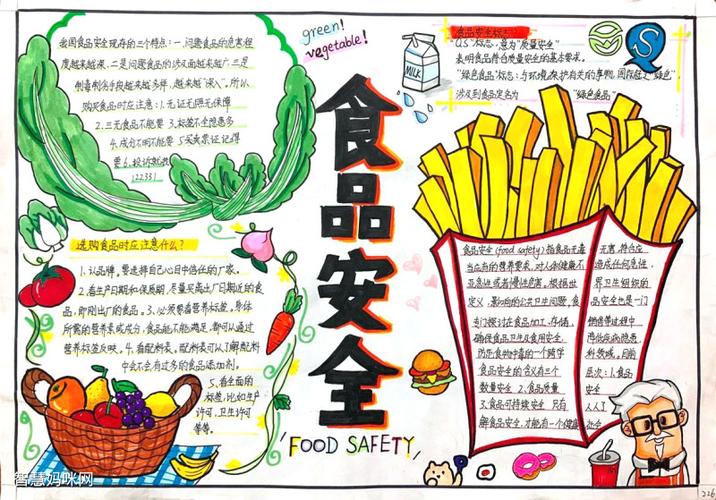 green!
vegetable!
食品安全
FOOD SAFETY
MILK
我国食品安全现存的三个特点：一.问题食品的危害程
度越来越深.二是问题食品的涉及面越来越广.三是
制毒制劣手段越来越多样，越来越"深入"。所以
购买食品时应注意：1.无证无照无保障
2.三无食品不能要 3.标签不全隐患多
4.成分不明不能要 5.买卖票证记得
要 6.投诉就拨
12331
食品安全标志
"QS"标志：意为"质量安全"
表明食品符合质量安全的基本要求。
"绿色食品"标志：与环境保护有关的事物，国际
涉及到食品定名为 "绿色食品"
选购食品时应注意什么？
1.认品牌，要选择自己心目中信任的厂家。
2.看生产日期和保质期，尽量买离出厂日期近的食
品，即刚出厂的食品。3.必须要看营养标签。身体
所需的营养素或成分，食品能不能满足，都可以通过
营养标签反映。4.看配料表。配料表可以了解配料
中会不会有过多的食品添加剂。
5.看全面的
标签，比如生产
许可，卫生许可
等等。
食品安全(food safety)指食品无毒
当应有的营养要求，对人体健康不
亚急性或者慢性危害。根据世
定义，影响的公共卫生问题，食
专门探讨在食品加工、存储、
确保食品卫生及食用安全
防范食物中毒的一个跨学
食品安全的含义有三个
数量安全 2.食品质量
3.食品可持续安全 只有
解食品安全，才能有一个健康
无害，符合应
造成任何急性、
界卫生组织的
品安全也是一门
销售等过程中
降低疾病隐患
科领域。目前
层次：1.食品
安全
人人了
社会
智慧妈咪网